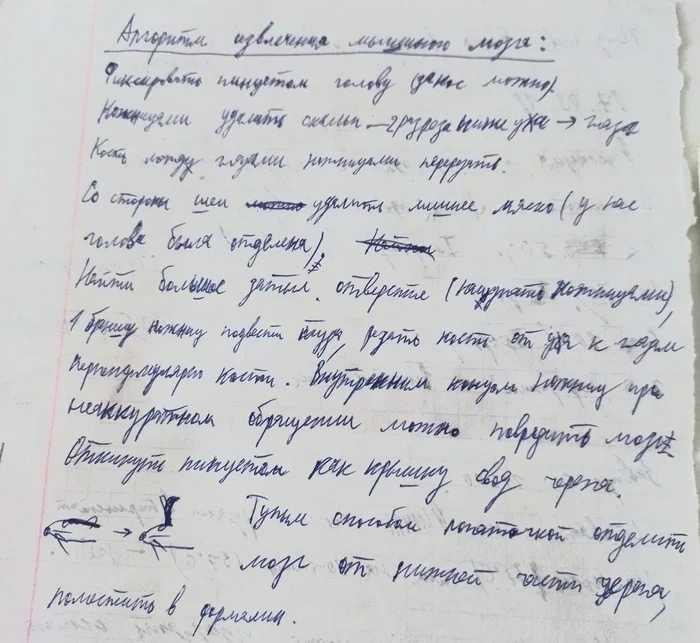 Алгоритм извлечения мышиного мозга:
Фиксировать пинцетом голову (за нос можно).
Ножницами удалить скальп — 2 разреза ниже уха → глаза
Кость между глазами ножницами перерезать.
Со стороны шеи удалить лишнее мясо (у нас
голова была отделена),
Найти большое затыл. отверстие (ножницами),
1 браншу ножниц подвести туда, резать кости от уха к глазам
перпендикулярно кости. Внутренним концом ножниц при
неаккуратном обращении можно повредить мозг
Откинуть пинцетом как крышку свод черепа.
Тупым способом лопаточкой отделить
мозг от нижней части черепа,
поместить в формалин.